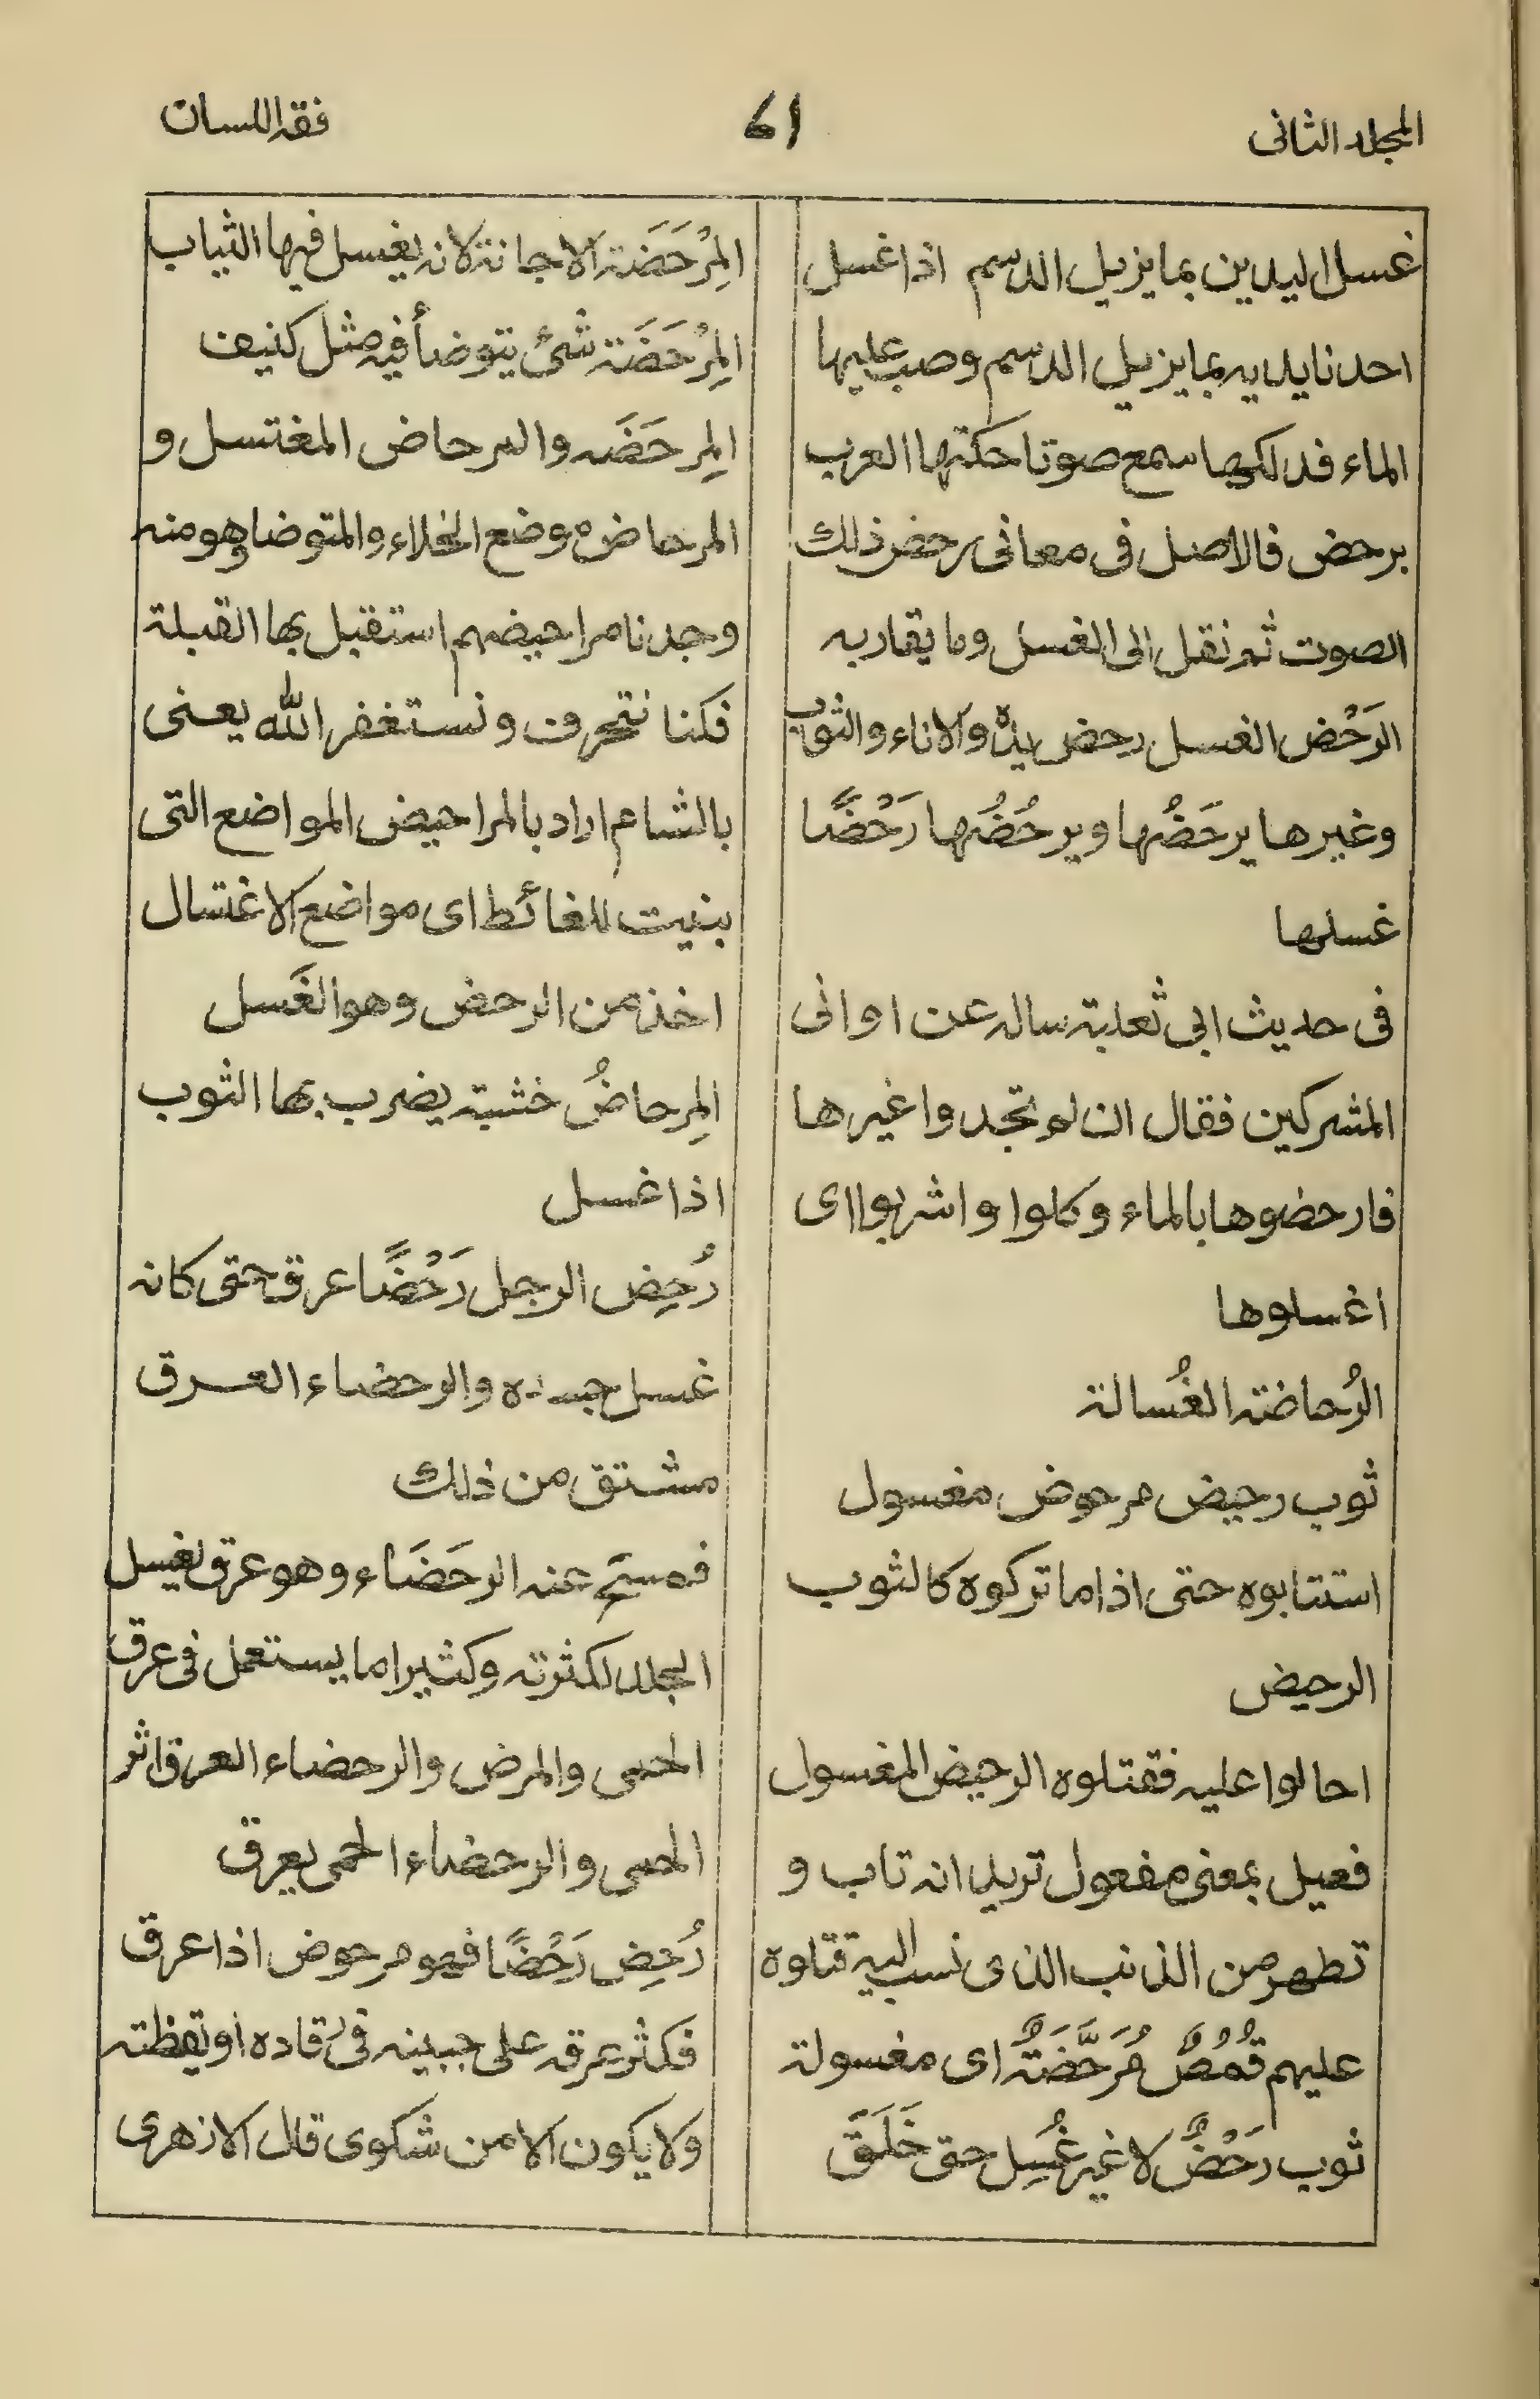 المجلد الثانى
61
فقه اللسان
غسل اليدين بما يزيل الدسم اذا غسل
احدنا يديه بما يزيل الدسم وصب عليها
الماء فدلكها سمع صوتا حكتها العرب
برحض فالاصل فى معانى رحض ذلك
الصوت ثم نقل الى الغسل وما يقاربه
الرَحْض الغسل رحض يدهُ والاناء والثوب
وغيرها يرحَضُها ويرحُضُها رَحْضًا
غسلها
فى حديث ابى ثعلبة ساله عن اوانى
المشركين فقال ان لم تجدوا غيرها
فارحضوها بالماء وكلوا واشربوا اى
اغسلوها
الرُحاضة الغُسالة
ثوب رحيض مرحوض مغسول
استتابوه حتى اذا ما تركوه كالثوب
الرحيض
احالوا عليه فقتلوه الرحيض المغسول
فعيل بمعنى مفعول تريد انه تاب و
تطهر من الذنب الذى نسب اليه قتلوه
عليهم قُمُصٌ مُرَحَّضَةٌ اى مغسولة
ثوب رَحْضٌ لا غير غُسِل حتى خَلَقَ
المِرْحَضَة الاجانة لانه يغسل فيها الثياب
المِرْحَضَة شئ يتوضأ فيه مثل كنيف
المِرحَضَه والمرحاض المغتسل و
المرحاض موضع الخلاء والمتوضا وهو منه
وجدنا مراحيضهم استقبل بها القبلة
فكنا نتحرف ونستغفر الله يعنى
بالشام اراد بالمراحيض المواضع التى
بنيت للغائط اى مواضع الاغتسال
اخذ من الرحض وهو الغَسل
المِرحاضُ خشبة يضرب بها الثوب
اذا غسل
رُحِض الرجل رَحْضًا عرق حتى كانه
غسل جسده والرحضاء العرق
مشتق من ذلك
فمسح عنه الرحَضَاء وهو عرق يغسل
الجلد لكثرته وكثيرا ما يستعمل فى عرق
الحمى والمرض والرحضاء العرق اثر
الحمى والرحضاء الحمى بعرق
رُحِض رَحْضًا فهو مرحوض اذا عرق
فكثر عرقه على جبينه فى رُقاده او يقظته
ولا يكون الا من شكوى قال الازهرى